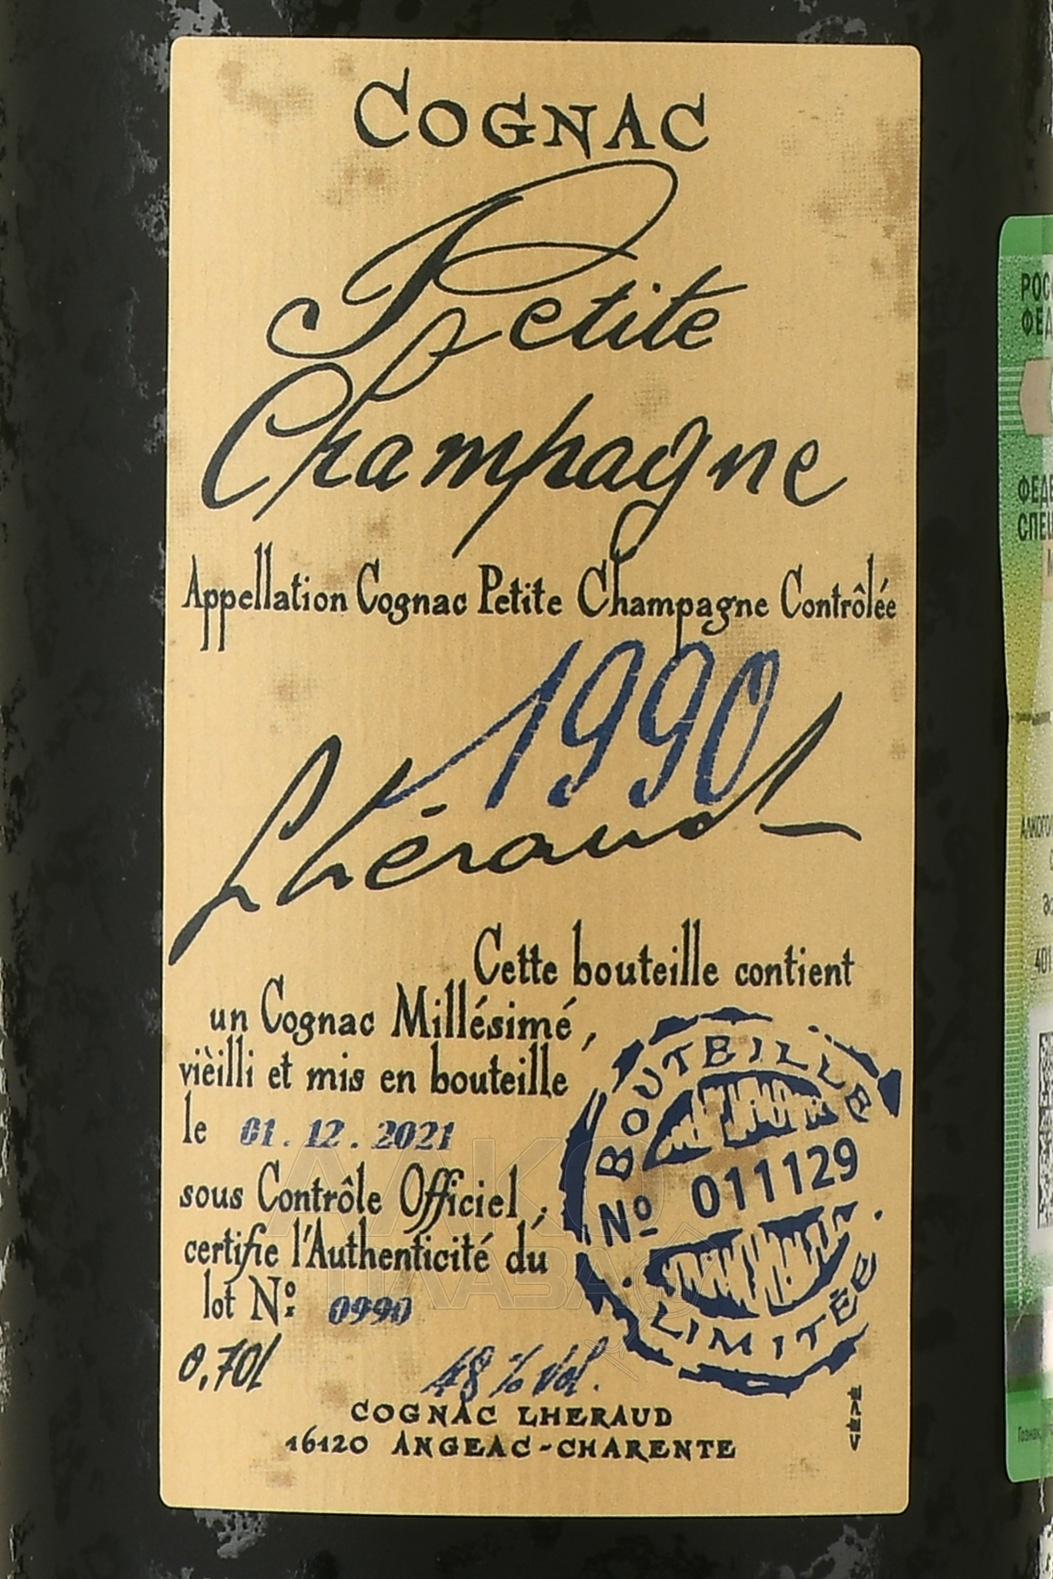 COGNAC
Petite
Champagne
Appellation Cognac Petite Champagne Contrôlée
1990
Lhéraud
Cette bouteille contient
un Cognac Millésimé,
vièilli et mis en bouteille
le 01.12.2021
sous Contrôle Officiel,
certifie l'Authenticité du
lot Nº: 0990
0,70l 48 % Vol.
COGNAC LHERAUD
16120 ANGEAC-CHARENTE
BOUTEILLE
Nº 011129
LIMITÉE
РОС
ФЕД
ФЕДЕ
СПЕЦ
АЛКОГО
401